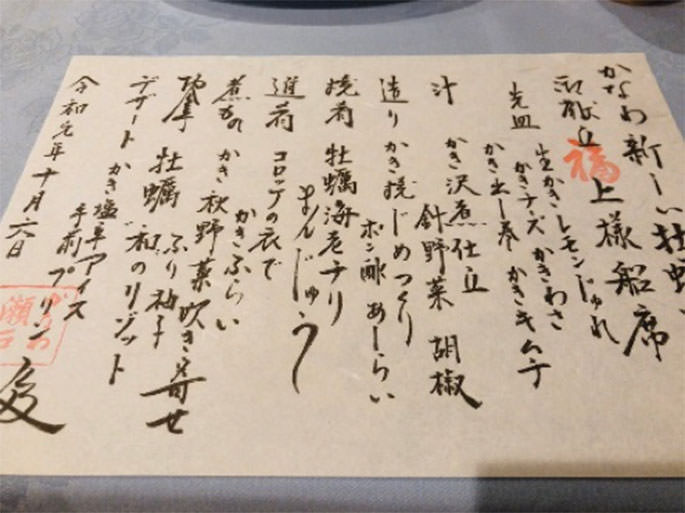 かなわ新しい牡蠣
御献立 福上様 船席
先皿 生かきレモンじゅれ
かきチーズ かきわさ
かき出し巻 かきキムチ
汁 かき沢煮仕立
針野菜 胡椒
造り かき焼じめつくり
ポン酢 あしらい
焼肴 牡蠣海老チリ
まんじゅう
進肴 コロッケの衣で
かきふらい
煮もの かき秋野菜吹き寄せ
ふり柚子
牡蠣 和のリゾット
デザート かき塩草アイス
手前プリン
令和元年十月六日
かなわ
瀬戸